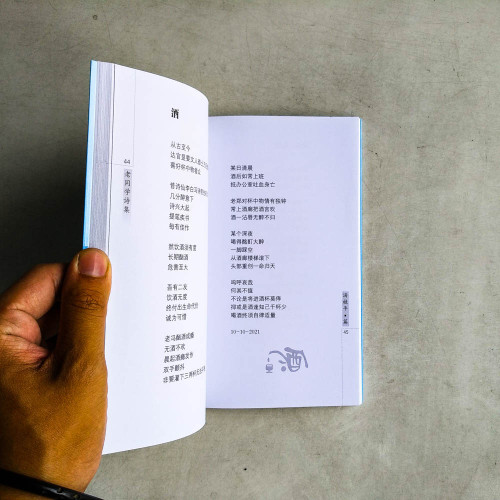 酒
从古至今
达官显要文人
昔诗仙李白
几分醉意下
诗兴大起
提笔疾书
每有佳作
然饮酒须有度
长期酗酒
危害至大
吾有二友
饮酒无度
终付出生命代价
诚为可惜
老冯酗酒成瘾
无酒不欢
晨起酒瘾发作
双手颤抖
非要灌下三两杯
44
老同学诗集
某日清晨
酒后如常上班
抵办公室吐血身亡
老郑对杯中物情有独钟
常上酒廊把酒言欢
酒一沾唇无醉不归
某个深夜
喝得酩酊大醉
一脚踩空
从酒廊楼梯滚下
头部重创一命归天
呜呼哀哉
何其不值
不论是将进酒杯莫停
抑或是酒逢知己千杯少
喝酒终须自律适量
10-10-2021
45